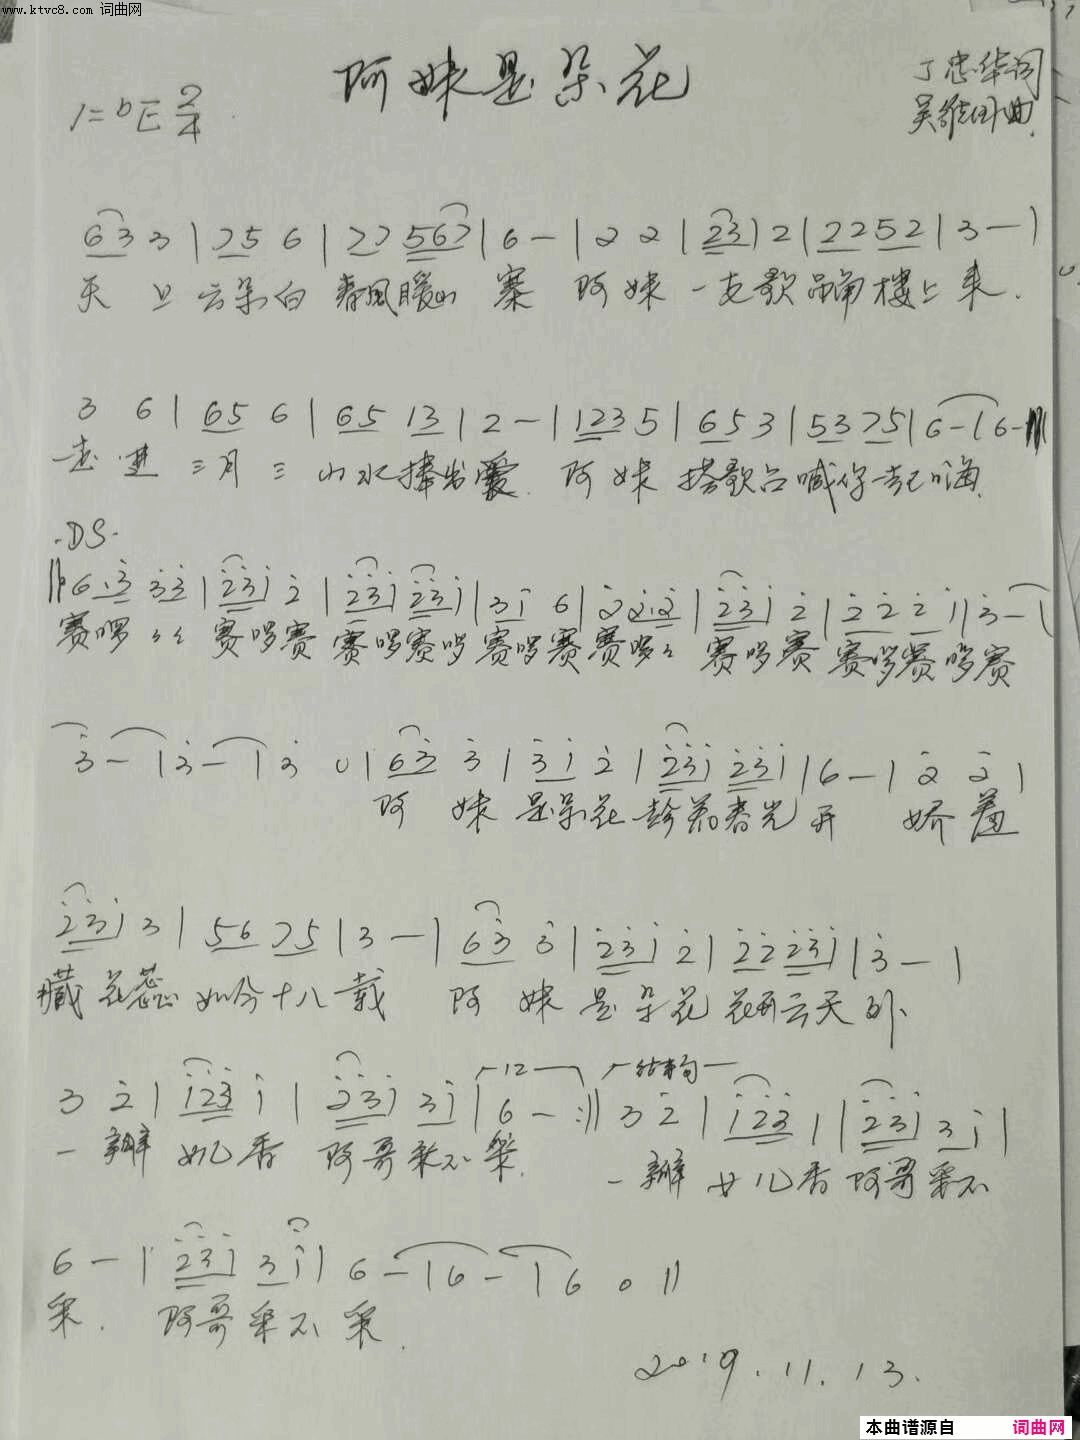 www.ktvc8.com 词曲网
阿妹是朵花
丁忠华词
1=bE 2/4
吴 曲
63 3 | 75 6 | 77 567 | 6 — | 2 2 | 23 1 2 | 2252 | 3 — |
天上云朵白 春风暖山寨 阿妹一支歌 角楼上来.
3 6 | 65 6 | 65 13 | 2 — | 123 5 | 65 3 | 53 75 | 6 — | 6 —
走进三月三 山水捧出爱. 阿妹搭歌台喊你一起嗨.
.DS.
6.3 33 | 231 2 | 231 231 | 31 6 | 2 2.2 | 231 2 | 22 21 | 3 — |
赛啰 赛啰赛 赛啰赛啰赛啰赛赛啰 赛啰赛 赛啰赛啰赛
3 — | 3 — | 3 0 | 63 3 | 31 2 | 231 231 | 6 — | 2 2 |
阿妹是朵花 春光开 娇羞
231 3 | 56 75 | 3 — | 63 3 | 231 2 | 22 231 | 3 — |
藏花蕊 如今十八载 阿妹是朵花 花开云天外.
12 结束句
3 2 | 123 1 | 231 31 | 6 — :|| 3 2 | 123 1 | 231 31 |
一瓣女儿香 阿哥采不采. 一瓣女儿香阿哥采不
6 — | 231 31 | 6 — | 6 — | 6 0 ||
采. 阿哥采不采.
2019.11.13.
本曲谱源自 词曲网